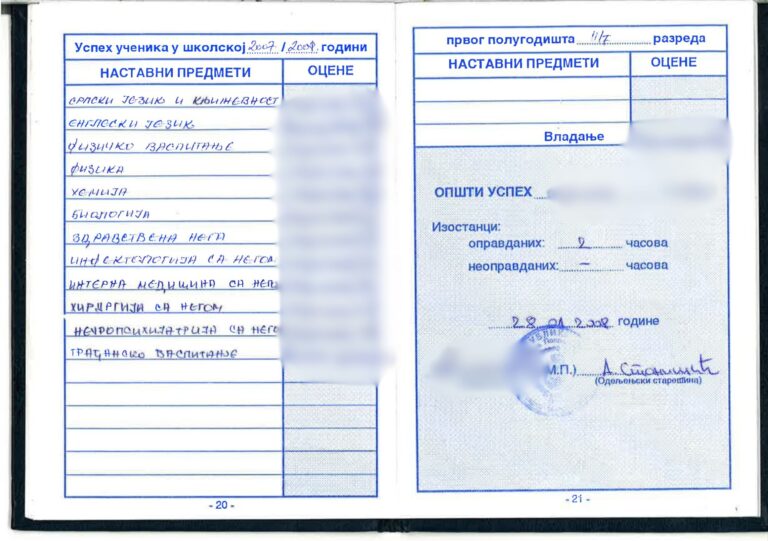 Успех ученика у школској 2007 / 2008. години
НАСТАВНИ ПРЕДМЕТИ ОЦЕНЕ
СРПСКИ ЈЕЗИК И КЊИЖЕВНОСТ
ЕНГЛЕСКИ ЈЕЗИК
ФИЗИЧКО ВАСПИТАЊЕ
ФИЗИКА
ХЕМИЈА
БИОЛОГИЈА
ЗДРАВСТВЕНА НЕГА
ИНФЕКТОЛОГИЈА СА НЕГОМ
ИНТЕРНА МЕДИЦИНА СА НЕГ
ХИРУРГИЈА СА НЕГОМ
НЕУРОПСИХИЈАТРИЈА СА НЕГО
ГРАЂАНСКО ВАСПИТАЊЕ
- 20 -
првог полугодишта III/7 разреда
НАСТАВНИ ПРЕДМЕТИ ОЦЕНЕ
Владање
ОПШТИ УСПЕХ
Изостанци:
оправданих: 2 часова
неоправданих: – часова
28 01 2008 године
(М.П.)
(Одељењски старешина)
- 21 -